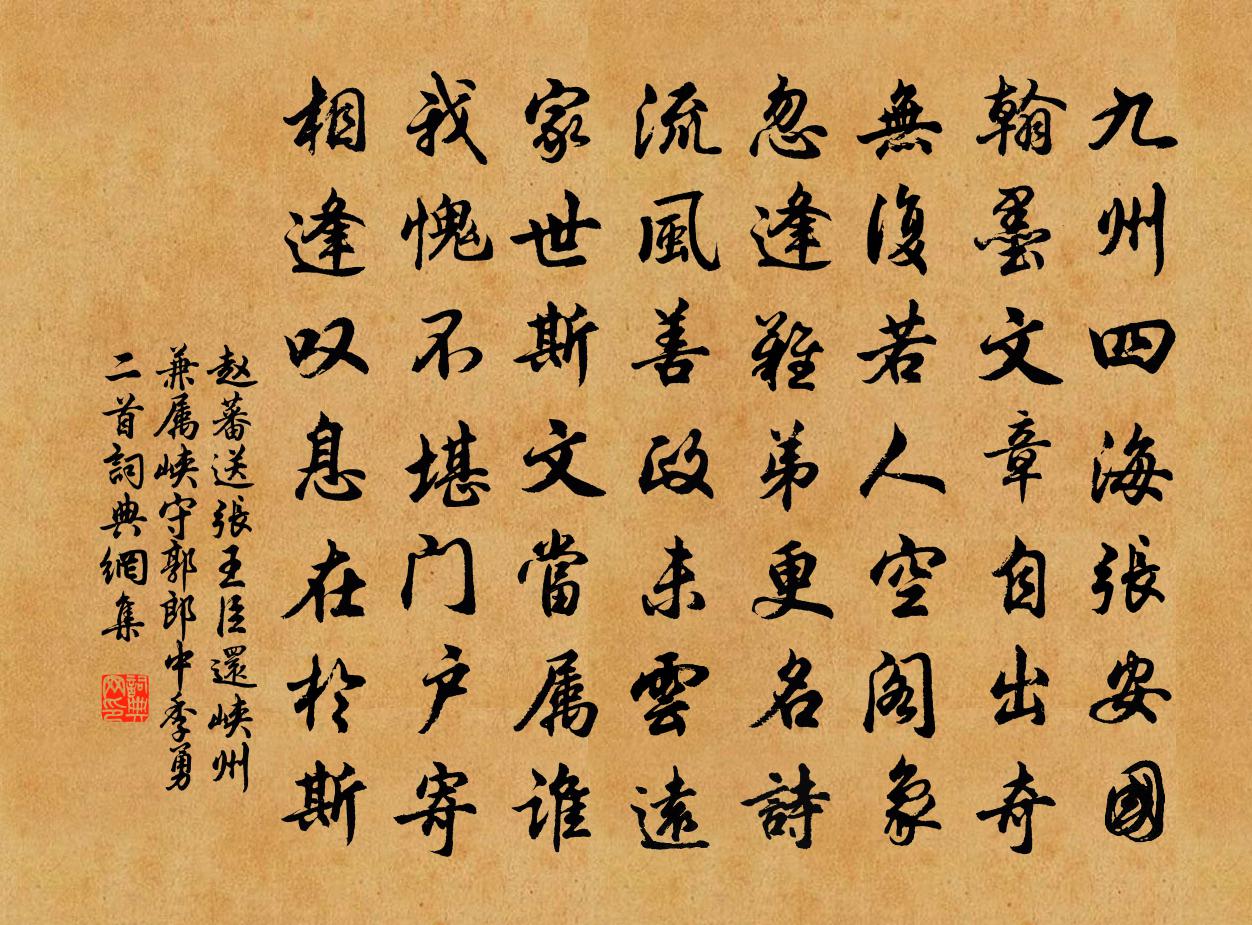 九州四海張安國
翰墨文章自出奇
無復若人空閣象
忽逢難弟更名詩
流風善政未雲遠
家世斯文當属誰
我愧不堪门户寄
相逢叹息在於斯
赵蕃送張王臣還峡州
兼属峡守郭郎中季勇
二首詞典網集
詞典
网印